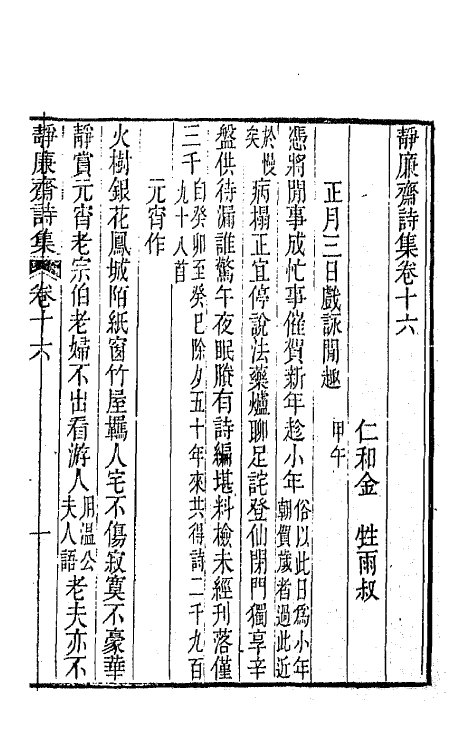 靜廉齋詩集卷十六
仁和金　甡雨叔
正月三日戲詠閒趣　甲午
憑將閒事成忙事催賀新年趁小年俗以此日爲小年朝賀歲者過此近
於慢矣病榻正宜停說法藥爐聊足詫登仙閉門獨享辛
盤供待漏誰驚午夜眠賸有詩編堪料檢未經刊落僅
三千自癸卯至癸巳除夕五十年來共得詩二千九百九十八首
元宵作
火樹銀花鳳城陌紙窗竹屋羈人宅不傷寂寞不豪華
靜賞元宵老宗伯老婦不出看游人用溫公夫人語老夫亦不
靜廉齋詩集　卷十六　一